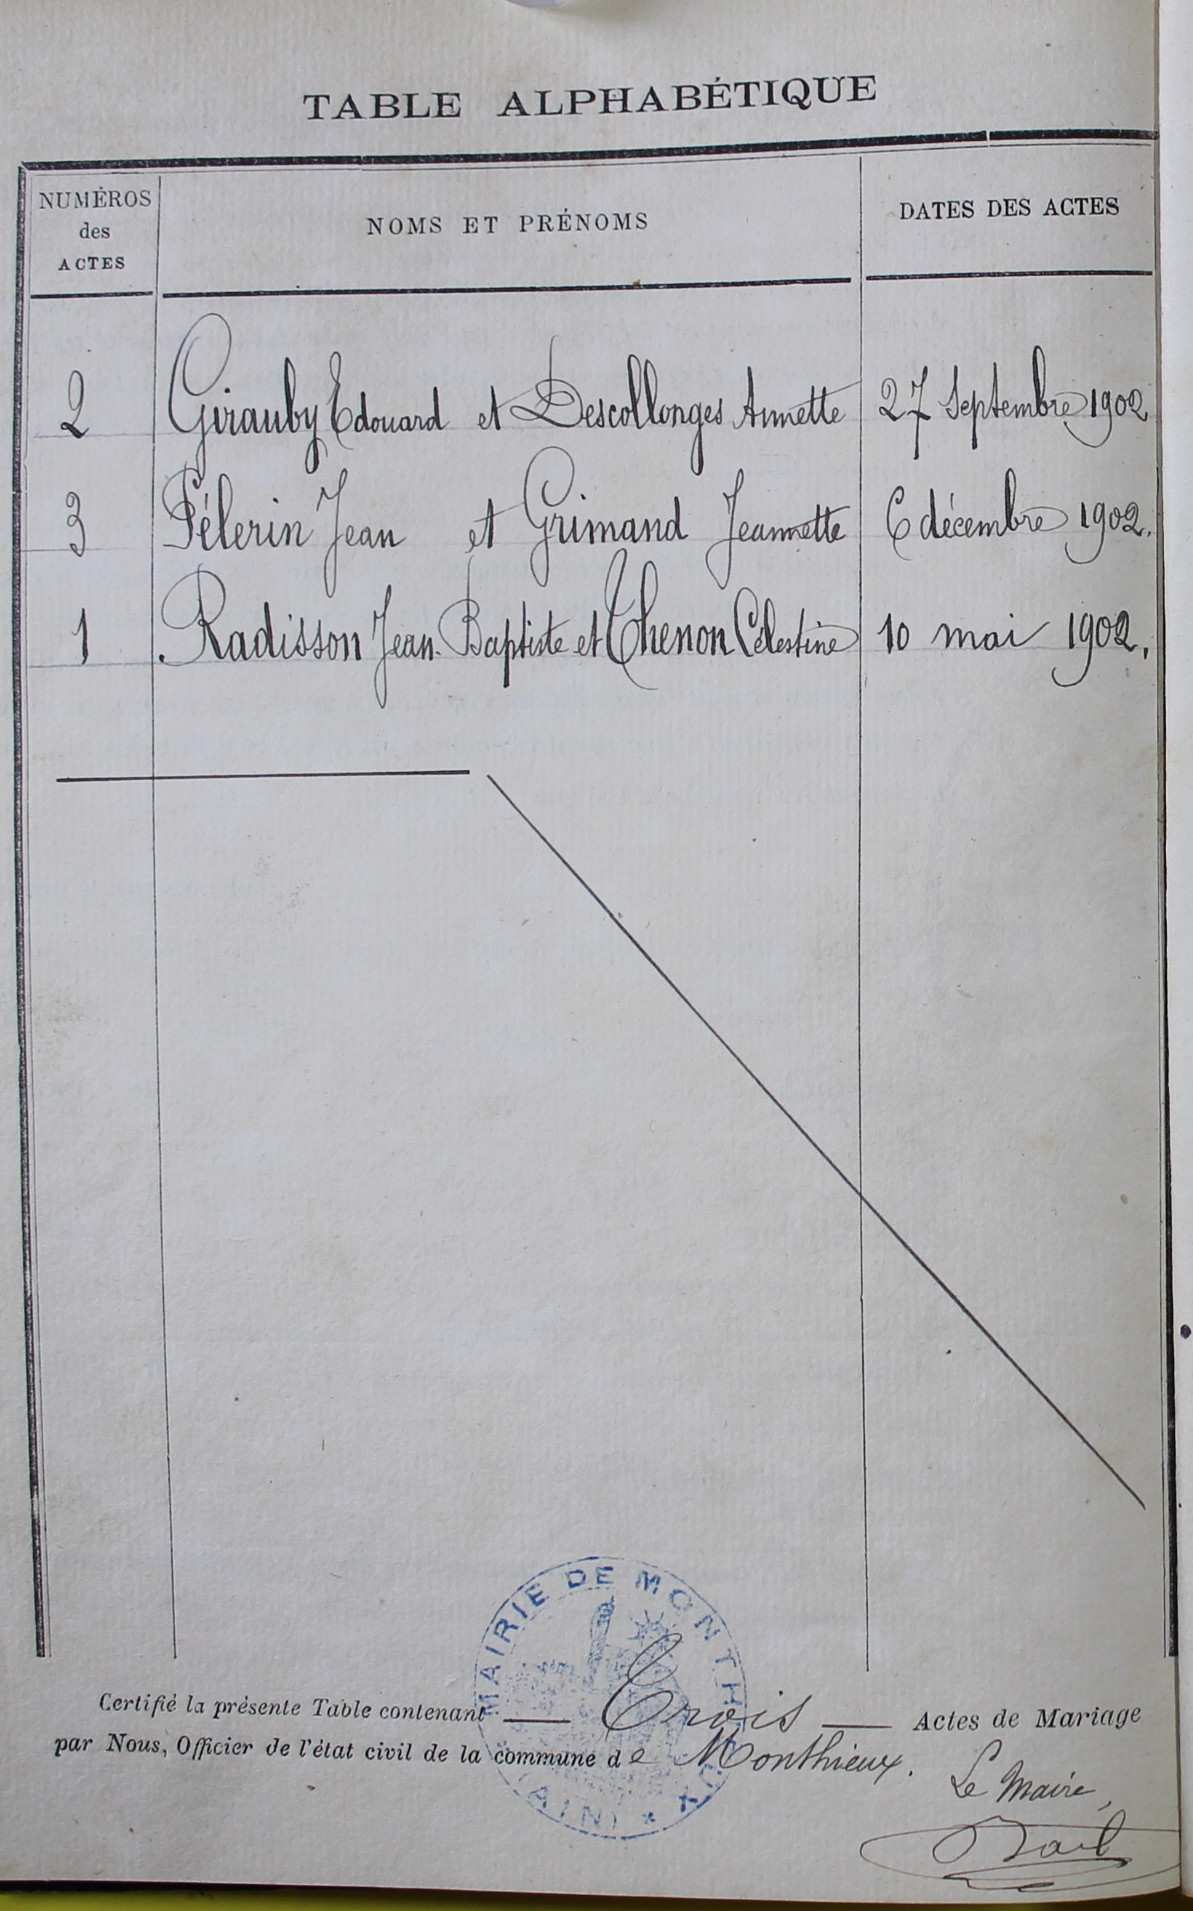 TABLE ALPHABÉTIQUE
NUMÉROS
des
ACTES
NOMS ET PRÉNOMS
DATES DES ACTES
2 Girauby Edouard et Descollonges Annette 27 Septembre 1902
3 Pélerin Jean et Grimand Jeannette 6 décembre 1902.
1 Radisson Jean-Baptiste et Chenon Célestine 10 mai 1902.
MAIRIE DE MONTHIEUX
(AIN)
Certifié la présente Table contenant Trois Actes de Mariage
par Nous, Officier de l'état civil de la commune de Monthieux.
Le Maire,